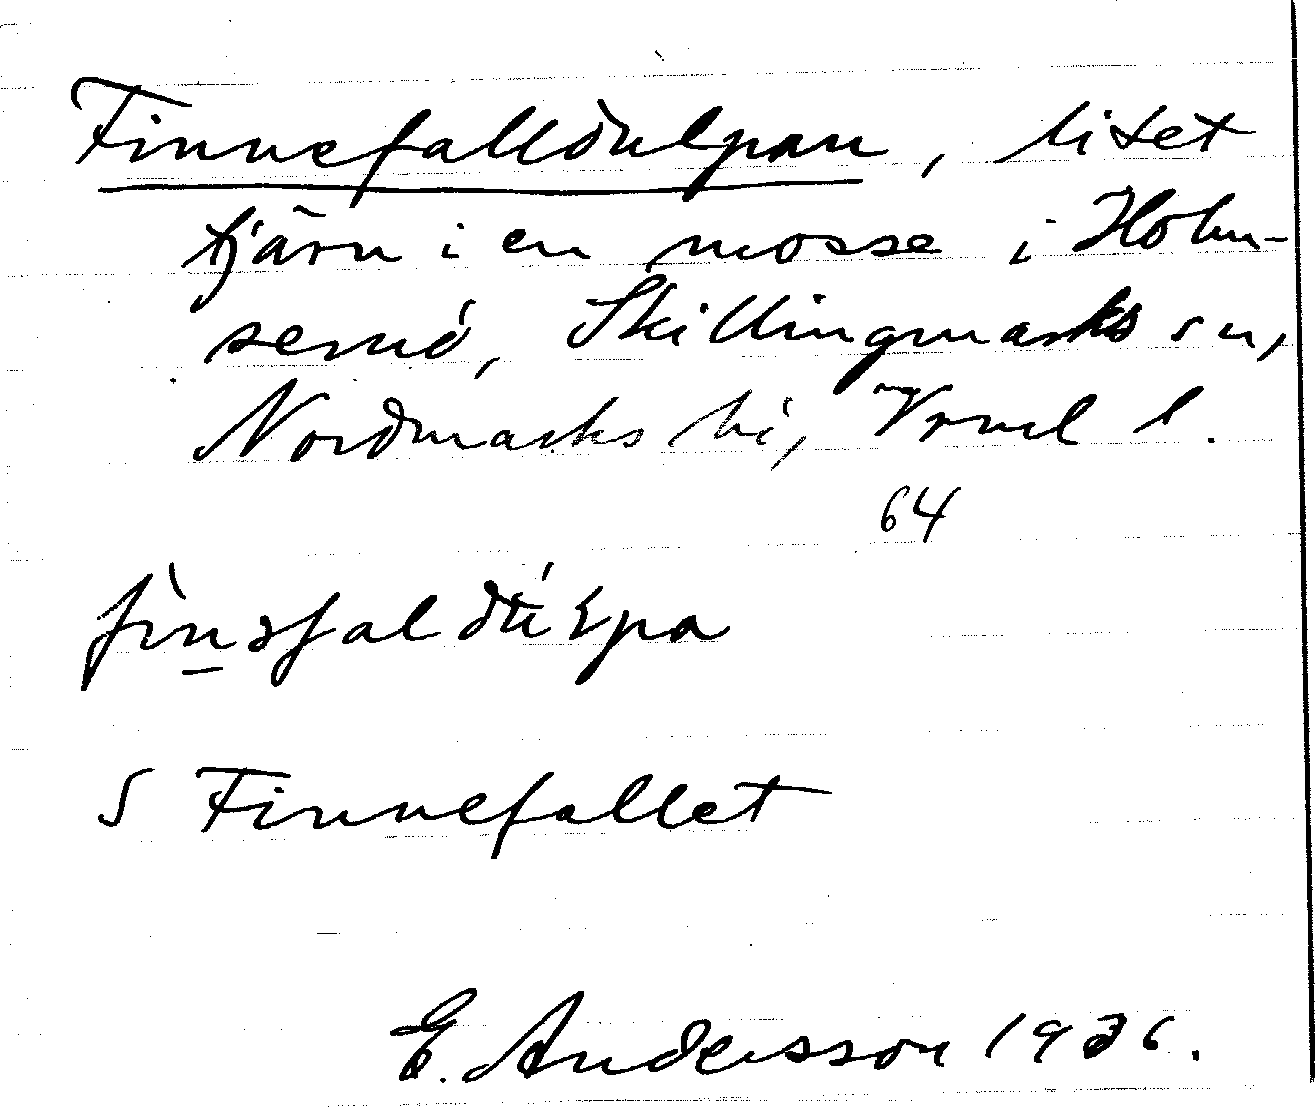 Finnefalldulpan, litet
tjärn i en mosse i Holm-
semé, Skillingmarks sn,
Nordmarks hd, Vrml l.
64
S Finnefallet
E. Andersson 1936.